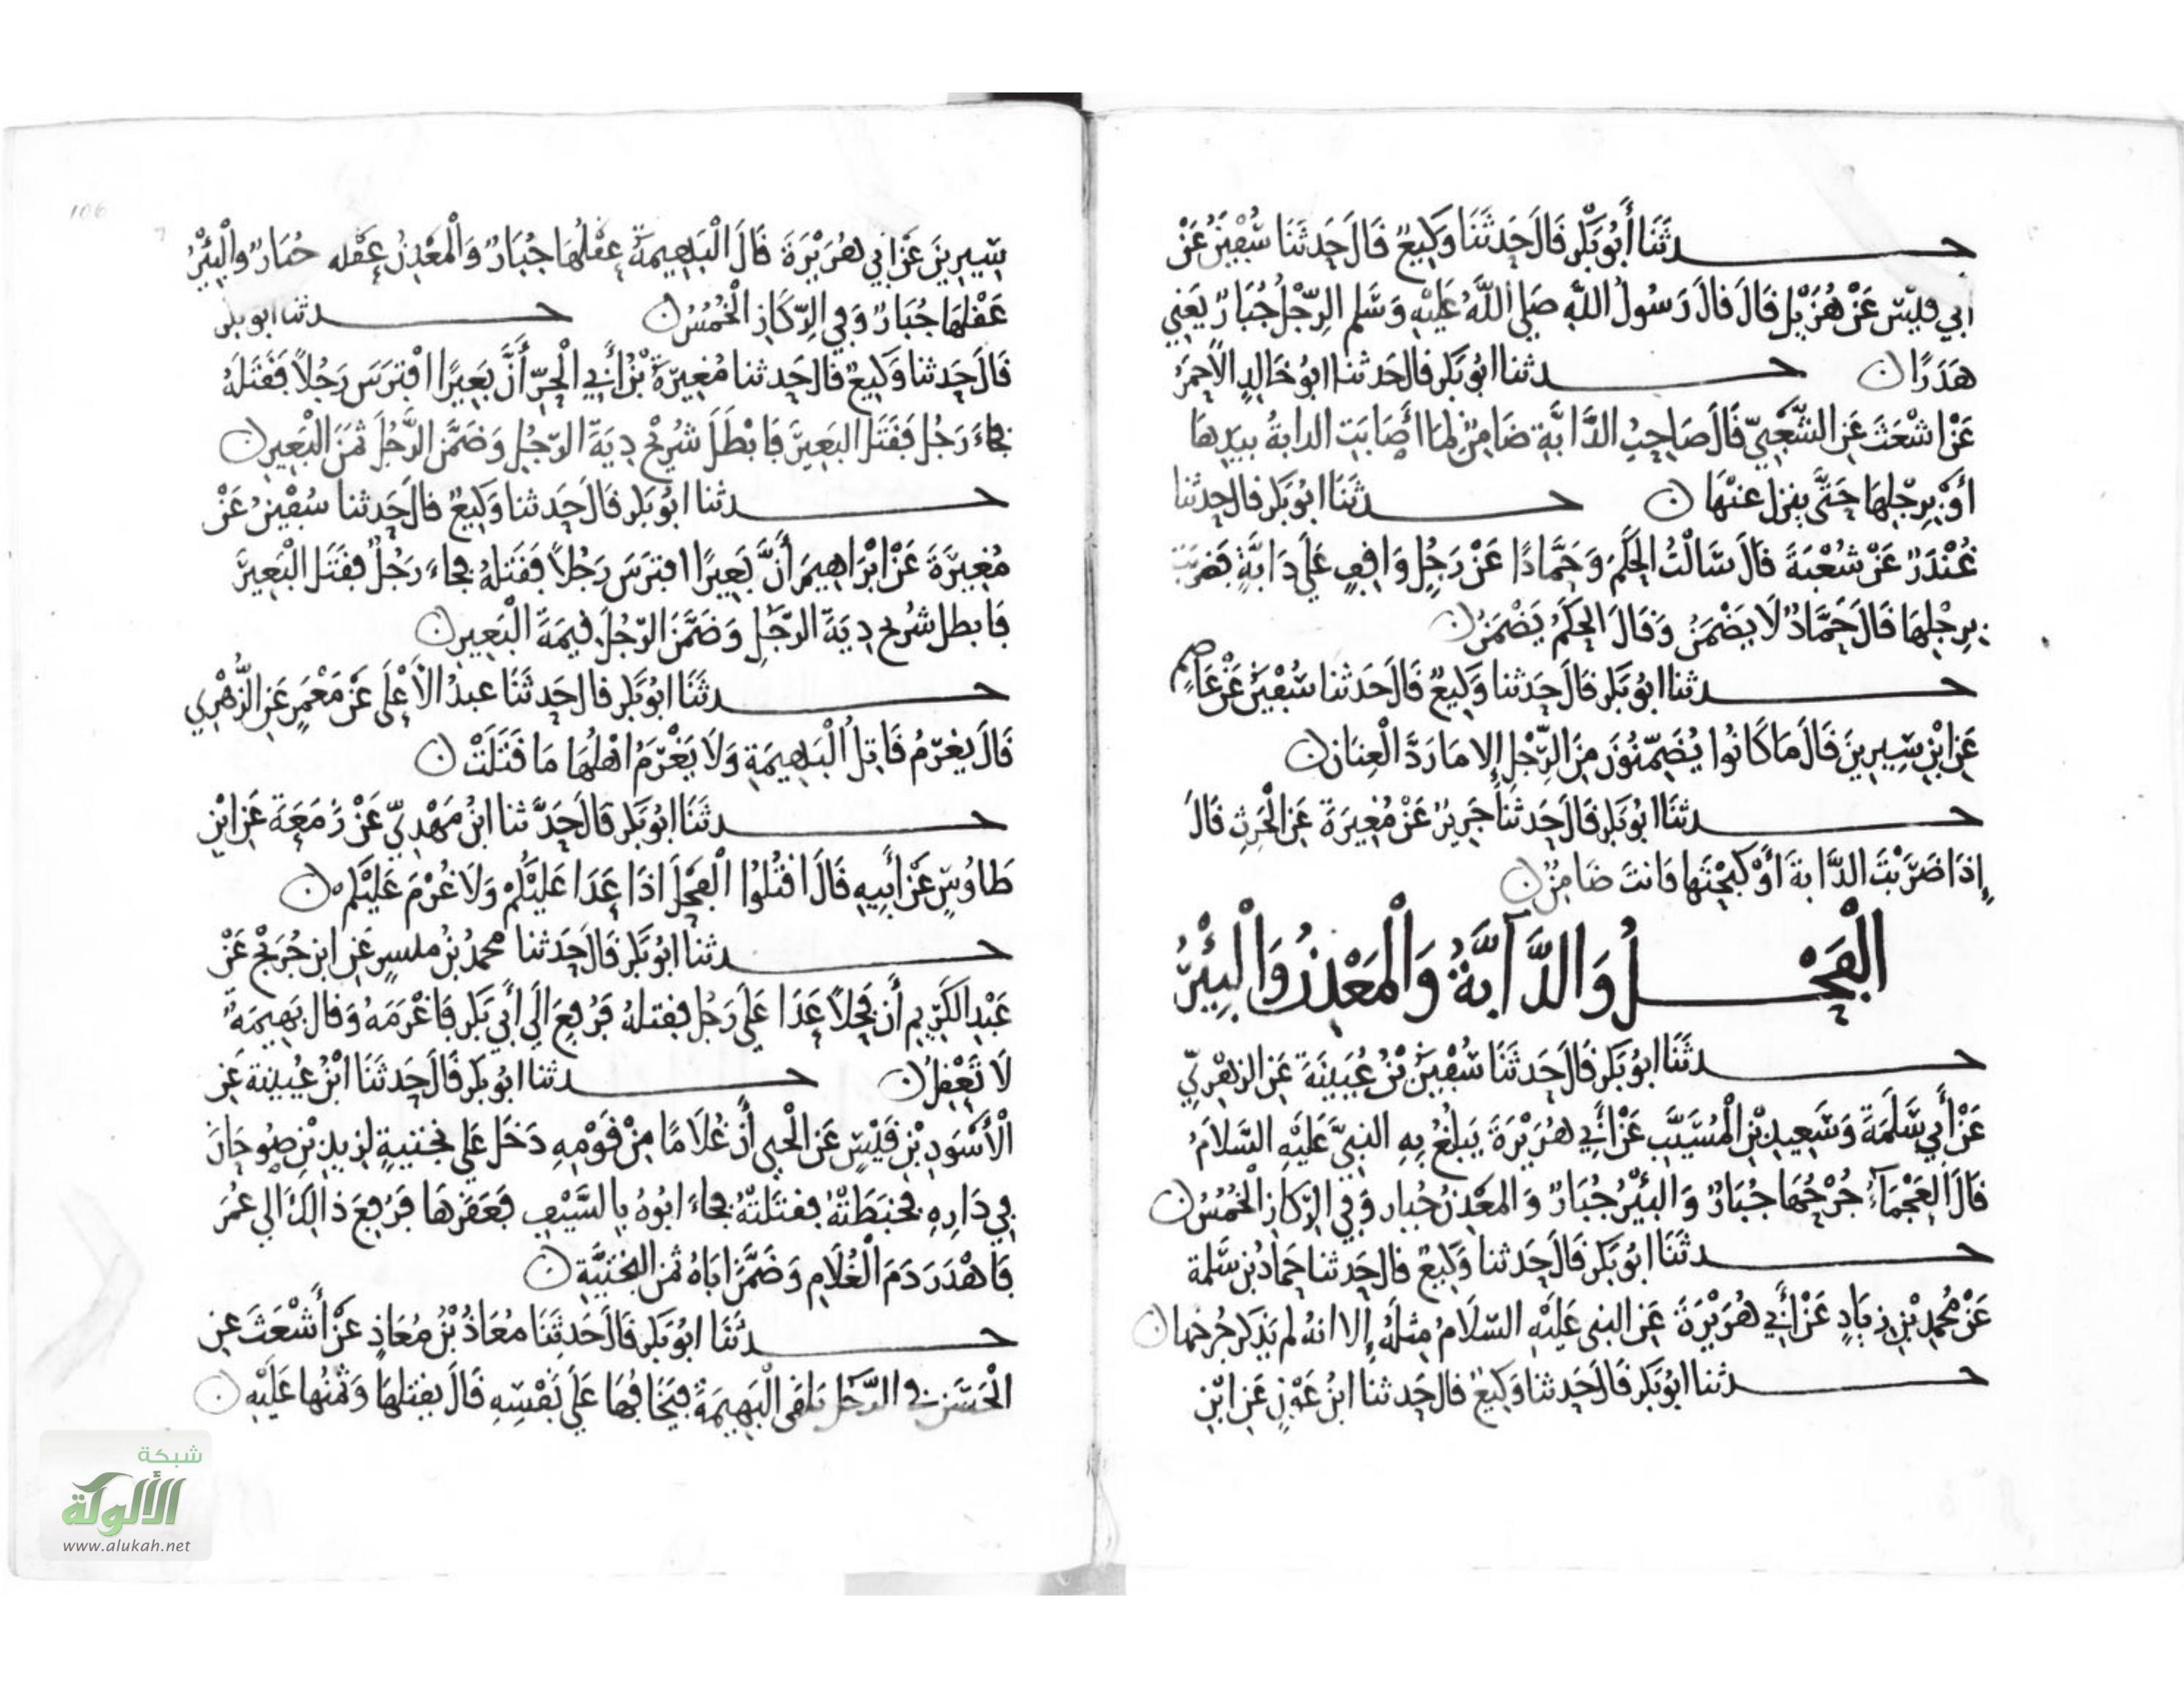 حدثنا أبو بكر قال حدثنا وكيع قال حدثنا سفين عن
أبي قيس عن هزيل قال قال رسول الله صلى الله عليه وسلم الرجل جبار يعني
هدرا ن حدثنا ابو بكر قال حدثنا ابو خالد الاحمر
عن اشعث عن الشعبي قال صاحب الدابة ضامن لما أصابت الدابة بيدها
أو برجلها حتى ينزل عنها ن حدثنا ابو بكر قال حدثنا
غندر عن شعبة قال سالت الحكم وحمادا عن رجل واقف على دابة فضربت
برجلها قال حماد لا يضمن وقال الحكم يضمن ن
حدثنا ابو بكر قال حدثنا وكيع قال حدثنا سفين عن عاصم
عن ابن سيرين قال ما كانوا يضمنون من الرجل إلا ما رد العنان ن
حدثنا ابو بكر قال حدثنا جرير عن مغيرة عن الحرث قال
إذا ضربت الدابة أو كبحتها فانت ضامن ن
الفحل والدآبة والمعدن والبئر
حدثنا ابو بكر قال حدثنا سفين بن عيينة عن الزهري
عن أبي سلمة وسعيد بن المسيب عن أبي هريرة يبلغ به النبي عليه السلام
قال العجمآء جرحها جبار والبئر جبار والمعدن جبار وفي الركاز الخمس ن
حدثنا ابو بكر قال حدثنا وكيع قال حدثنا حماد بن سلمة
عن محمد بن زياد عن أبي هريرة عن النبي عليه السلام مثله إلا انه لم يذكر جرحها ن
حدثنا ابو بكر قال حدثنا وكيع قال حدثنا ابن عون عن ابن
106
سيرين عن ابي هريرة قال البهيمة عقلها جبار والمعدن عقله جبار والبئر
عقلها جبار وفي الركاز الخمس ن حدثنا ابو بكر
قال حدثنا وكيع قال حدثنا مغيرة بن أبي الحر أن بعيرا افترس رجلا فقتله
فجاء رجل فقتل البعير فابطل شريح دية الرجل وضمن الرجل ثمن البعير ن
حدثنا ابو بكر قال حدثنا وكيع قال حدثنا سفين عن
مغيرة عن ابراهيم أن بعيرا افترس رجلا فقتله فجاء رجل فقتل البعير
فابطل شريح دية الرجل وضمن الرجل قيمة البعير ن
حدثنا ابو بكر قال حدثنا عبد الأعلى عن معمر عن الزهري
قال يغرم قاتل البهيمة ولا يغرم اهلها ما قتلت ن
حدثنا ابو بكر قال حدثنا ابن مهدي عن زمعة عن ابن
طاوس عن أبيه قال اقتلوا الفحل اذا عدا عليكم ولا غرم عليكم ن
حدثنا ابو بكر قال حدثنا محمد بن ميسر عن ابن جريج عن
عبد الكريم أن فحلا عدا على رجل فقتله فرفع الى أبي بكر فاغرمه وقال بهيمة
لا تعقل ن حدثنا ابو بكر قال حدثنا ابن عيينة عن
الأسود بن قيس عن الحي أن غلاما من قومه دخل على نجتية لزيد بن صوحان
في داره فخبطته فقتلته فجاء ابوه بالسيف فعقرها فرفع ذالك الى عمر
فاهدر دم الغلام وضمن اباه ثمن النجتية ن
حدثنا ابو بكر قال حدثنا معاذ بن معاذ عن أشعث عن
الحسن في الرجل يلقى البهيمة فيخافها على نفسه قال يقتلها وثمنها عليه ن
شبكة
الألوكة
www.alukah.net